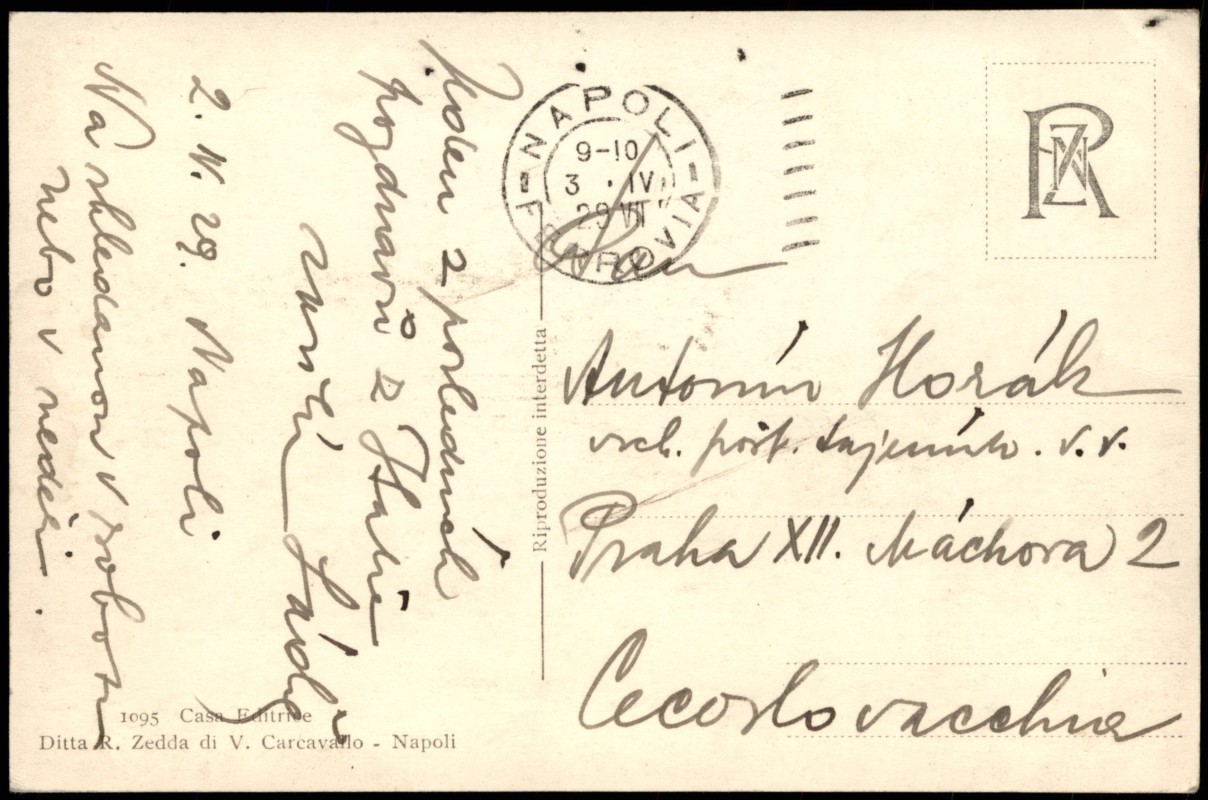 Jeden z posledních
pozdravů z Italie
Láďa
2. IV. 29. Napoli
Na shledanou v sobotu
nebo v neděli.
NAPOLI
9-10
3 . IV
29 VII
FERROVIA
RZN
Pan
Antonín Horák
vrch. pošt. tajemník. v. v.
Praha XII. Máchova 2
Cecoslovacchia
Riproduzione interdetta
1095 Casa Editrice
Ditta R. Zedda di V. Carcavallo - Napoli